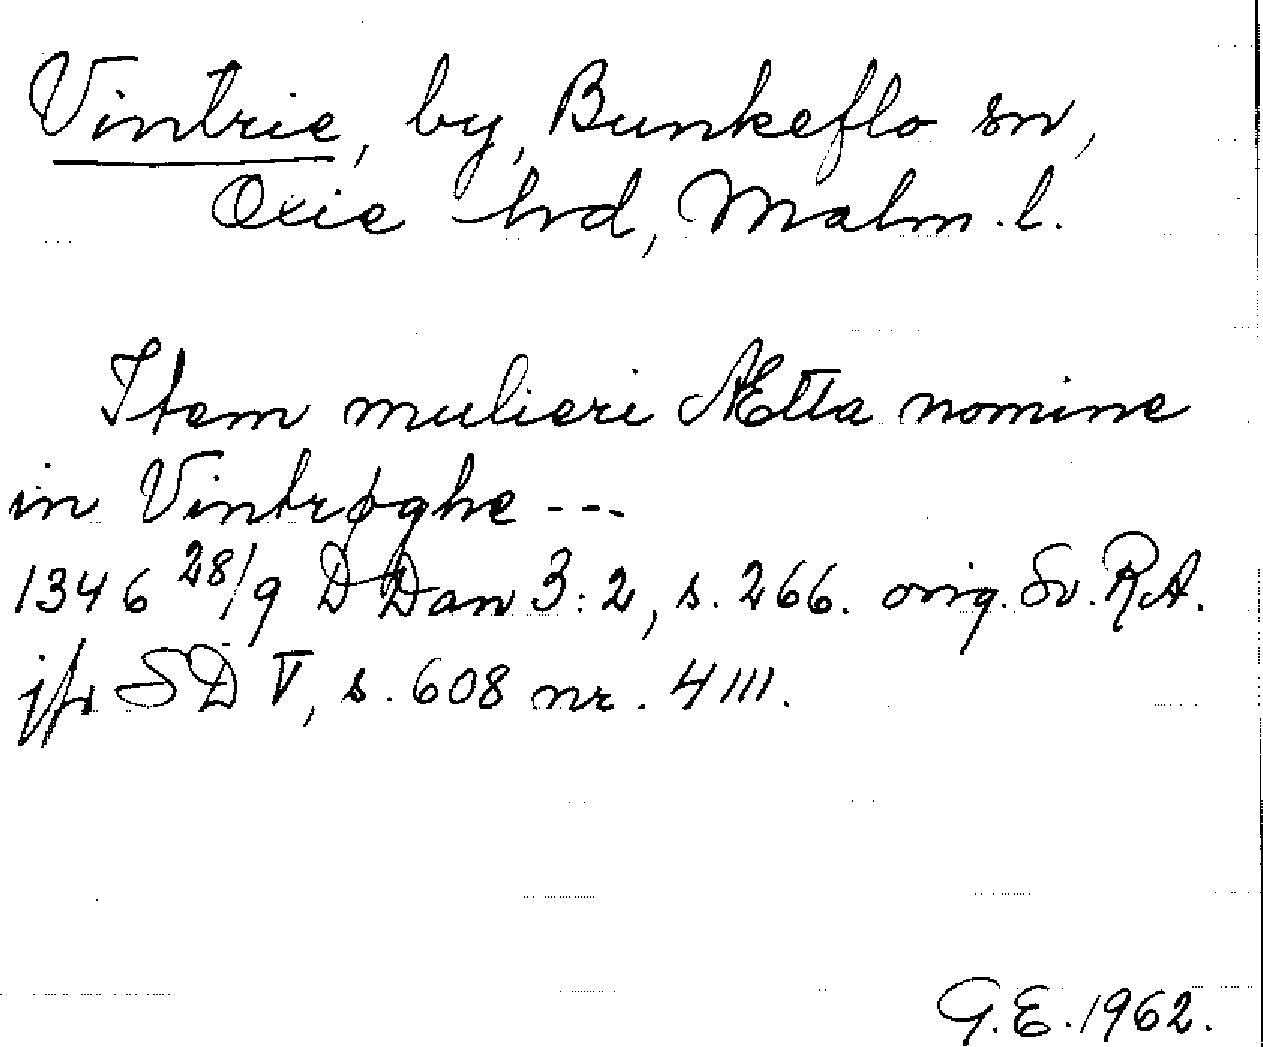 Vintrie, by, Bunkeflo sn,
Oxie hrd, Malm. l.
Item mulieri Ætta nomine
in Vintrøghe ---
1346 28/9 D Dan 3:2, s. 266. orig. Sv. RA.
jfr SD V, s. 608 nr. 4111.
G.E. 1962.